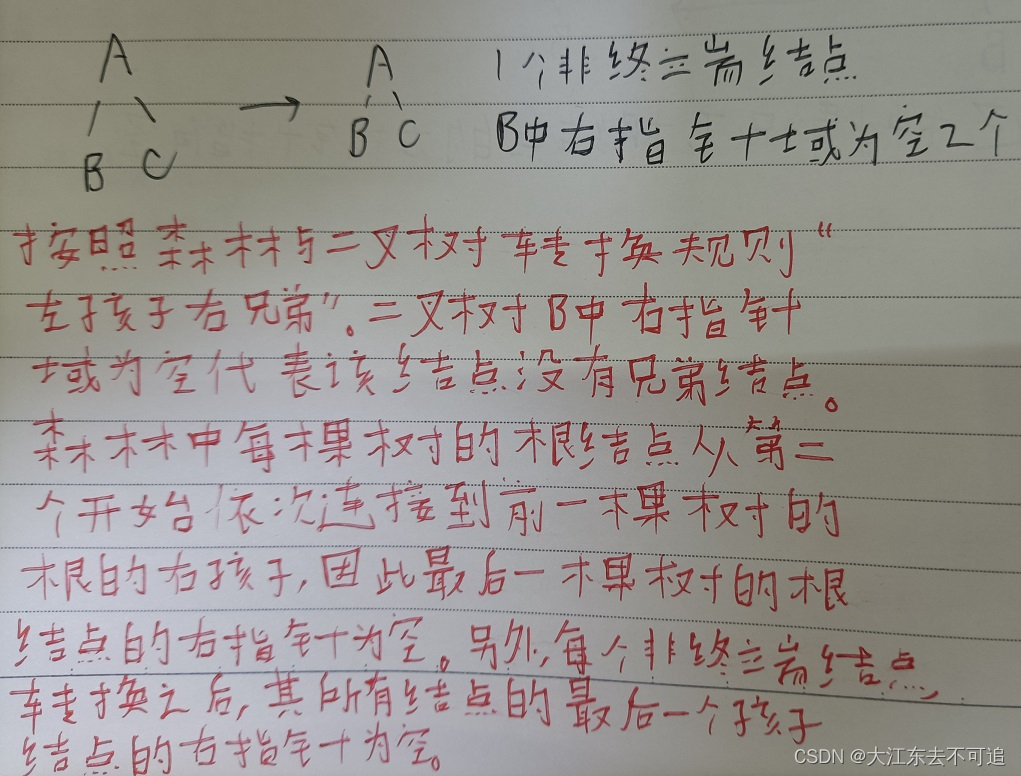 A → A 1个非终端结点
B C B C B中右指针域为空2个
按照森林与二叉树转换规则“
左孩子右兄弟”。二叉树B中右指针
域为空代表该结点没有兄弟结点。
森林中每棵树的根结点从第二
个开始依次连接到前一棵树的
根的右孩子,因此最后一棵树的根
结点的右指针为空。另外,每个非终端结点,
转换之后,其所有结点的最后一个孩子
结点的右指针为空。
CSDN @大江东去不可追